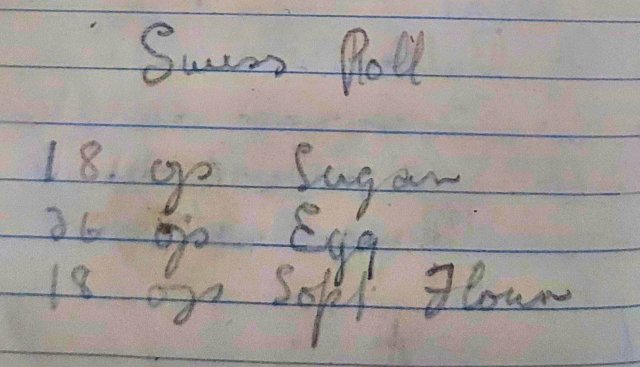 Swiss Roll
18. ozs Sugar
26 ozs Egg
18 ozs Soft Flour